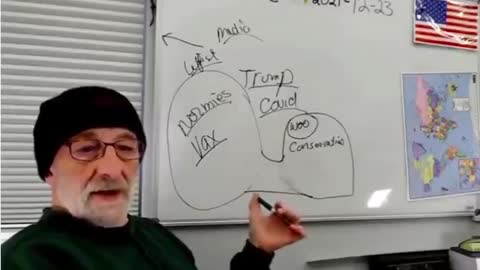 2021-12-23
Media
Trump
Normies
Covid
Woo
Vax